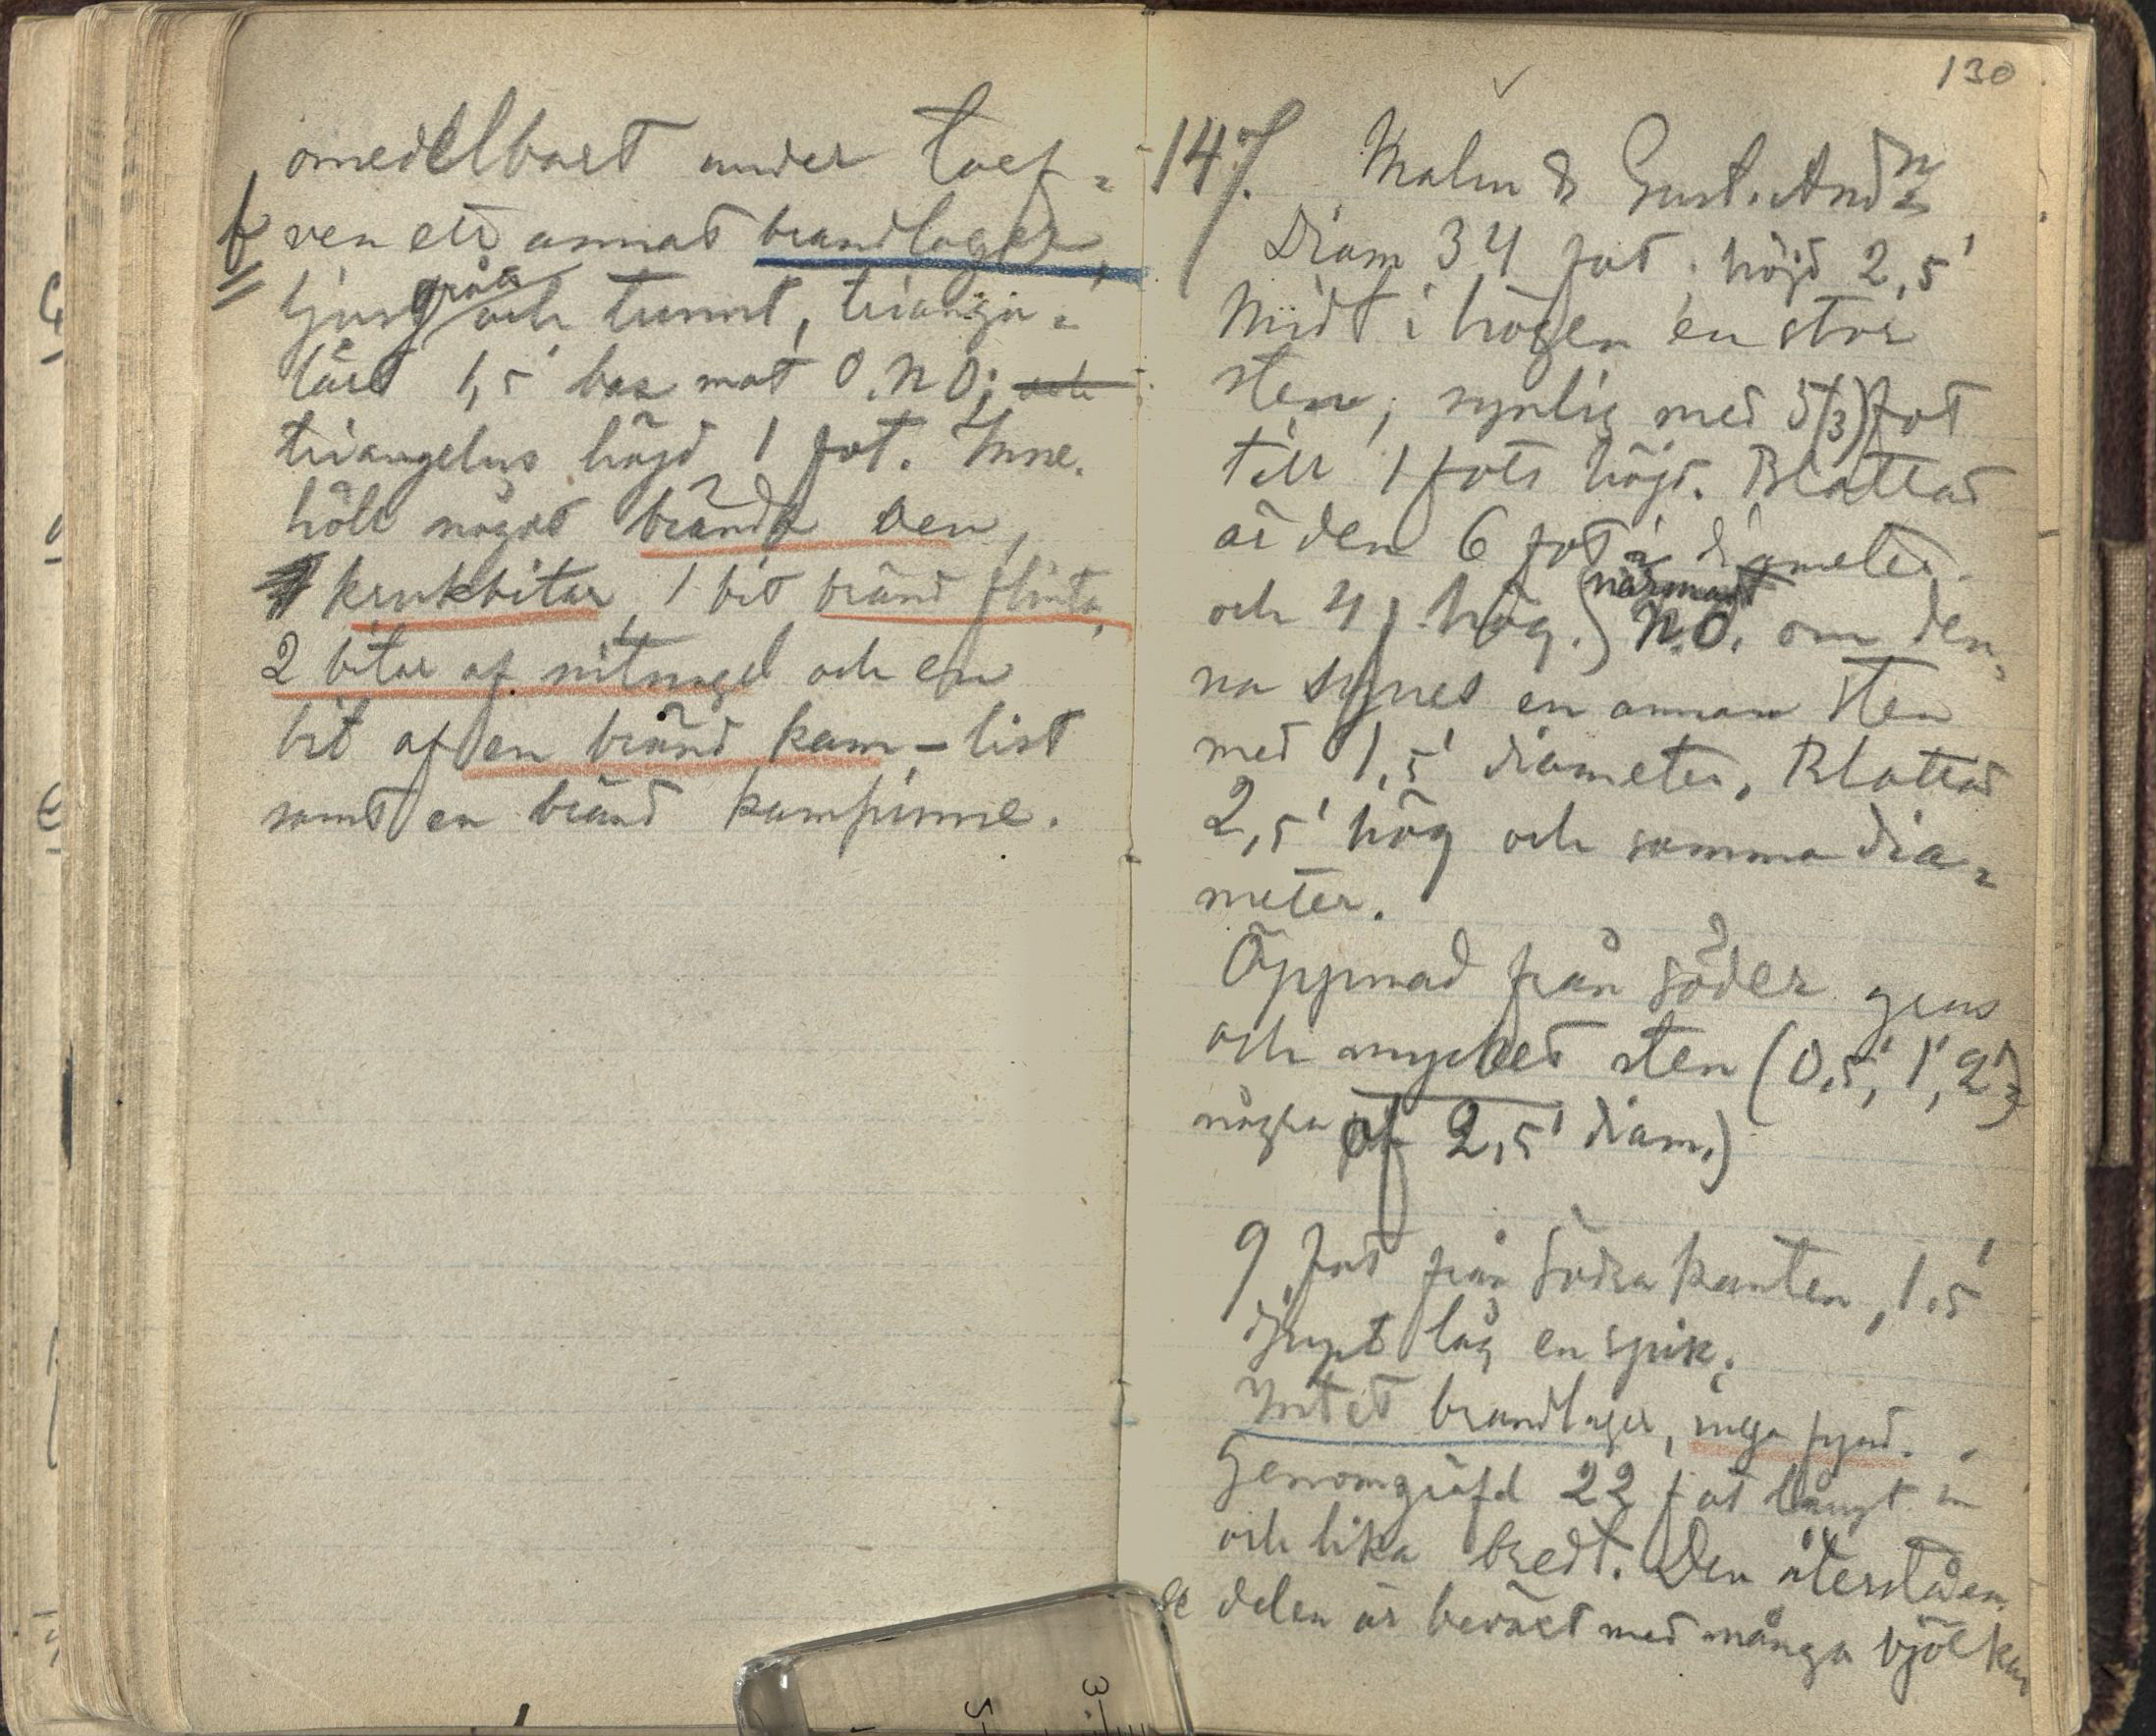 omedelbart under torf-
f ven ett annat brandlager,
ljusgrått och tunnt, triangu-
lärt 1,5' bas mot O.N.O; och
triangelns höjd 1 fot. Inne-
höll något brända ben,
krukbitar, 1 bit bränd flinta,
2 bitar af nitnagel och en
bit af en bränd kam-list
samt en bränd kampinne.
130
147. Malm & Gust. And:n
Diam 34 fot, höjd 2,5'
Midt i högen en stor
sten, synlig med 5 (3) fot
till 1 fots höjd. Blottad
är den 6 fot i diameter
och 4 f hög. närmast
N.O. om den-
na synes en annan sten
med 1,5' diameter, Blottad
2,5' hög och samma dia-
meter.
Öppnad från söder grus
och mycket sten (0,5', 1', 2',
några af 2,5' diam.)
9 fot från Södra kanten, 1,5'
djupt låg en spik.
Intet brandlager, inga fynd.
Genomgräfd 22 fot långt in
och lika bredt. Den återståen-
de delen är beväxt med många björkar